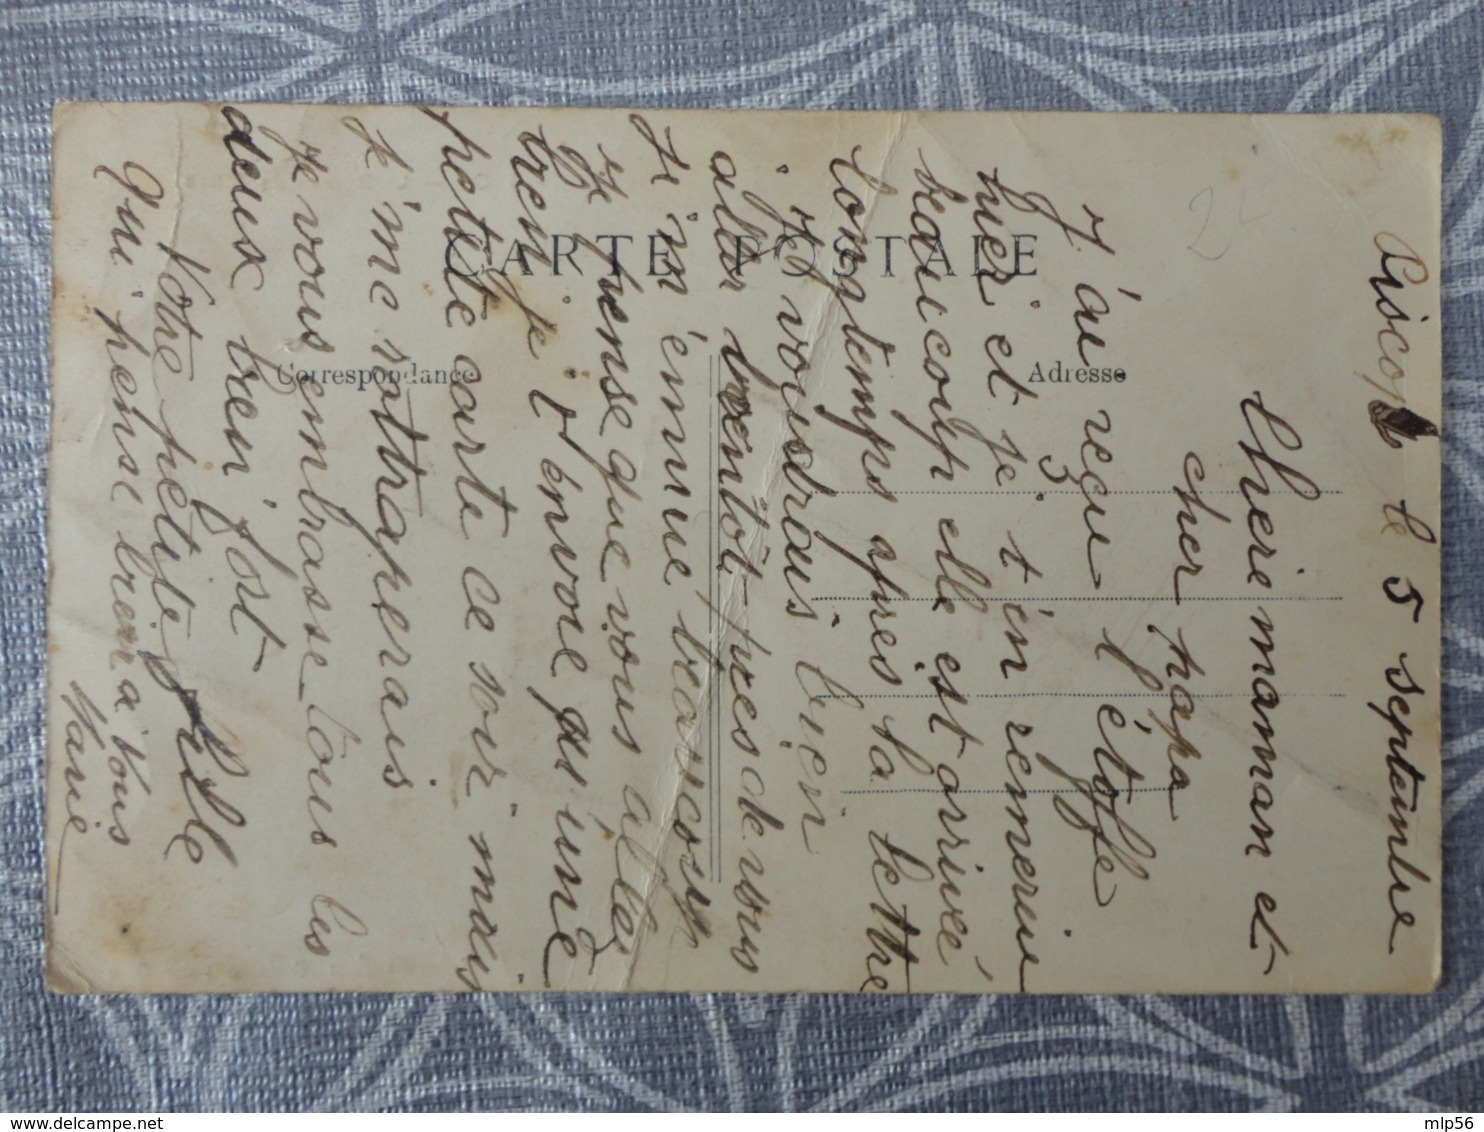 CARTE POSTALE
Correspondance
Adresse
2
le 5 septembre
Chere maman et
cher papa
J'ai reçu l'étoffe
hier et je t'en remercie
beaucoup elle est arrivée
lomgtemps apres ta lettre
Je voudrais bien
aller bientôt pres de vous
Je m'ennuie beaucoup
Je pense que vous allez
bien je t'envoie qu'une
petite carte ce soir mais
je me rattraperais
Je vous embrasse tous les
deux bien fort
Votre petite fille
qui pense bien a vous
Marie
mlp56